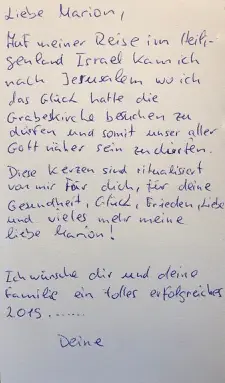 Liebe Marion,
Auf meiner Reise im Heili-
genland Israel kam ich
nach Jerusalem wo ich
das Glück hatte die
Grabeskirche besuchen zu
dürfen und somit unser aller
Gott näher sein zu dürfen.
Diese Kerzen sind ritualisiert
von mir für dich, für deine
Gesundheit, Glück, Frieden, Liebe
und vieles mehr meine
liebe Marion!
Ich wünsche dir und deine
Familie ein tolles erfolgreiches
2019.......
Deine